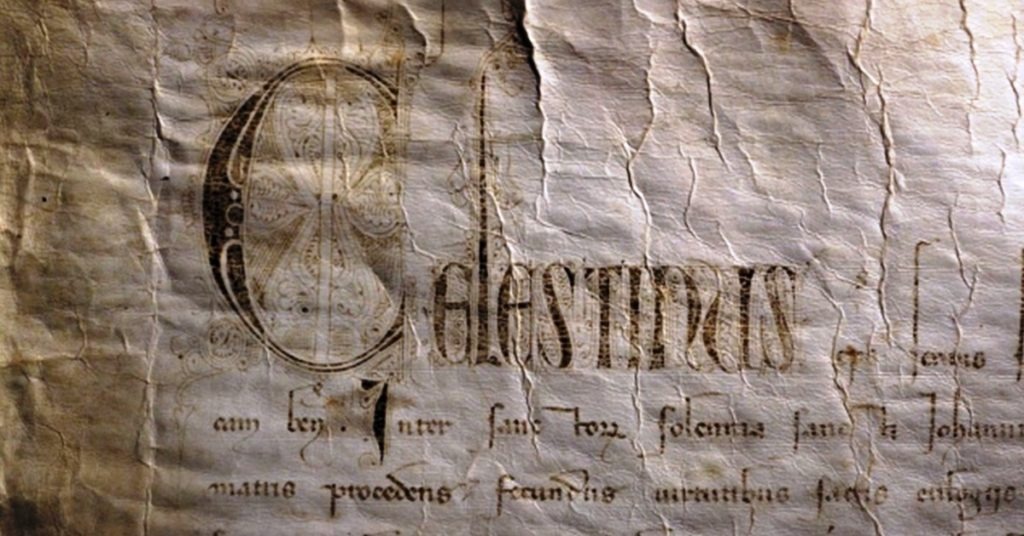 Celestinus eps servus
cam ben. Inter sanctorz solemnia sancti Johannis
matris procedens fecundus virtutibus sacris eulogiis